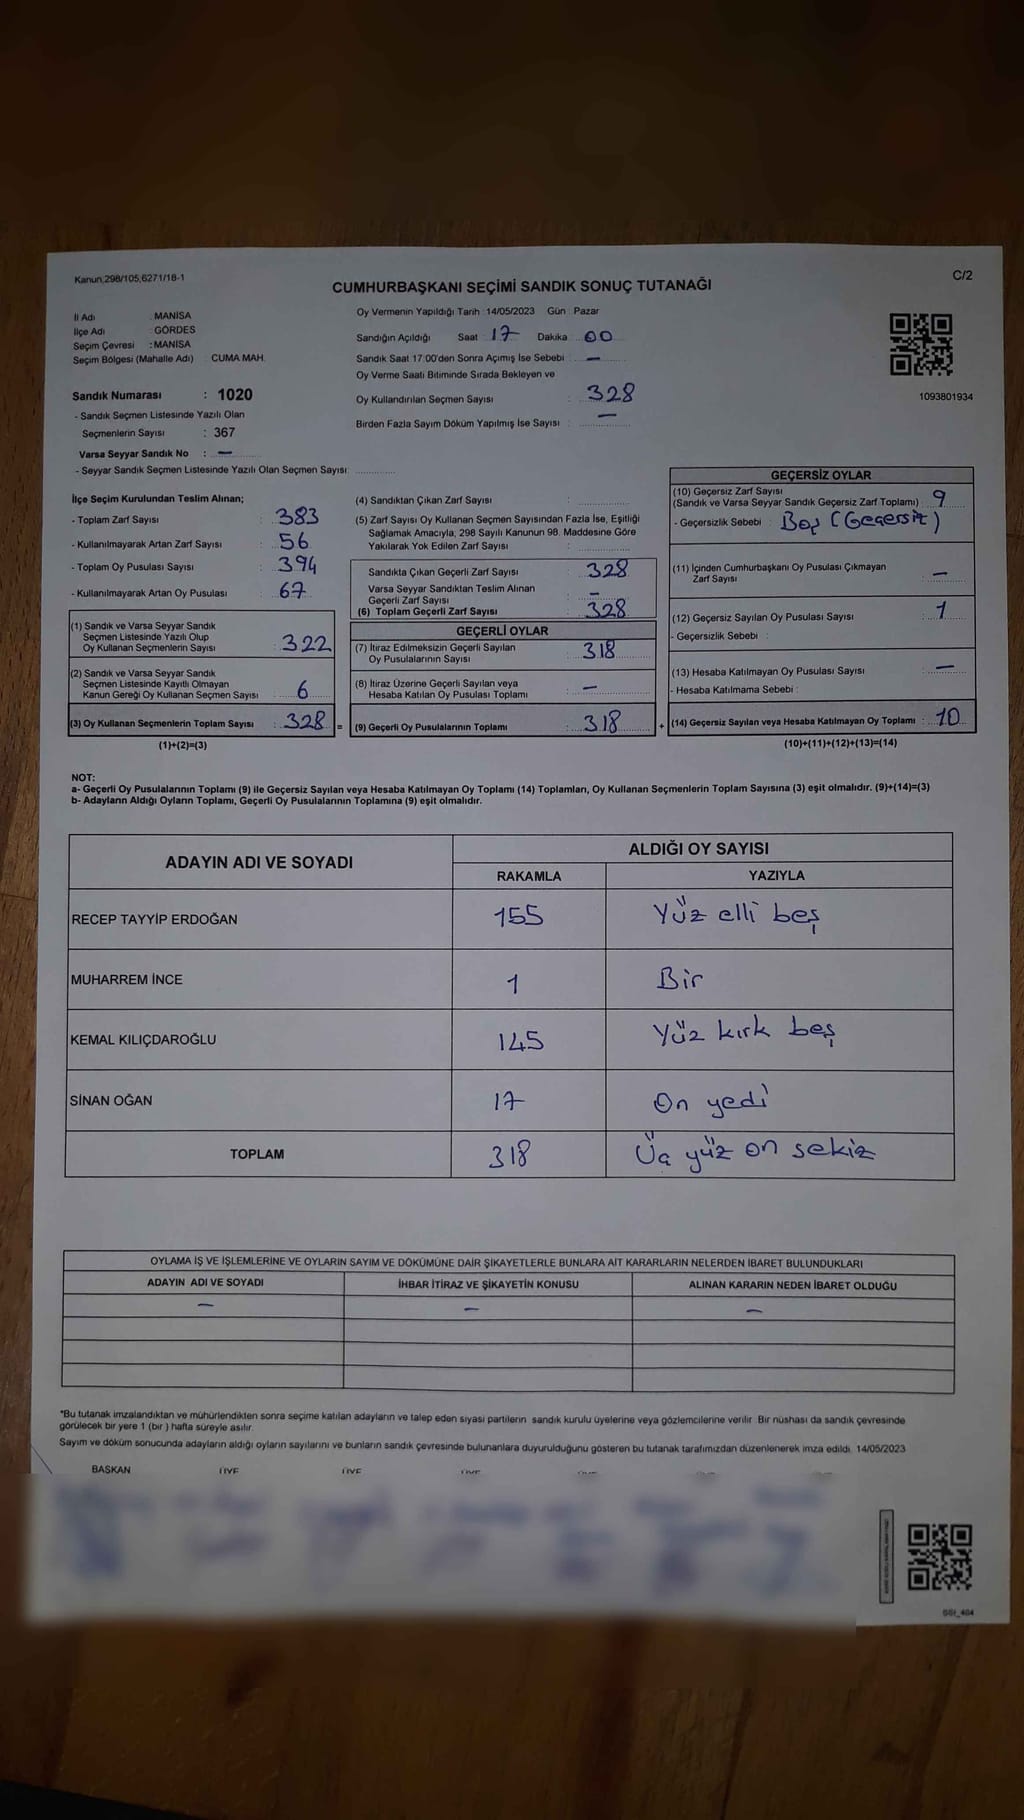 Kanun;298/105,6271/18-1
C/2
CUMHURBAŞKANI SEÇİMİ SANDIK SONUÇ TUTANAĞI
İl Adı : MANİSA
İlçe Adı : GÖRDES
Seçim Çevresi : MANİSA
Seçim Bölgesi (Mahalle Adı) : CUMA MAH.
Sandık Numarası : 1020
- Sandık Seçmen Listesinde Yazılı Olan
Seçmenlerin Sayısı : 367
Varsa Seyyar Sandık No : —
- Seyyar Sandık Seçmen Listesinde Yazılı Olan Seçmen Sayısı:
Oy Vermenin Yapıldığı Tarih : 14/05/2023 Gün : Pazar
Sandığın Açıldığı Saat 17 Dakika 00
Sandık Saat 17:00'den Sonra Açımış İse Sebebi : —
Oy Verme Saati Bitiminde Sırada Bekleyen ve
Oy Kullandırılan Seçmen Sayısı : 328
Birden Fazla Sayım Döküm Yapılmış İse Sayısı : —
1093801934
İlçe Seçim Kurulundan Teslim Alınan;
- Toplam Zarf Sayısı : 383
- Kullanılmayarak Artan Zarf Sayısı : 56
- Toplam Oy Pusulası Sayısı : 394
- Kullanılmayarak Artan Oy Pusulası : 67
(1) Sandık ve Varsa Seyyar Sandık
Seçmen Listesinde Yazılı Olup
Oy Kullanan Seçmenlerin Sayısı 322
(2) Sandık ve Varsa Seyyar Sandık
Seçmen Listesinde Kayıtlı Olmayan
Kanun Gereği Oy Kullanan Seçmen Sayısı 6
(3) Oy Kullanan Seçmenlerin Toplam Sayısı : 328 =
(1)+(2)=(3)
(4) Sandıktan Çıkan Zarf Sayısı :
(5) Zarf Sayısı Oy Kullanan Seçmen Sayısından Fazla İse, Eşitliği
Sağlamak Amacıyla, 298 Sayılı Kanunun 98. Maddesine Göre
Yakılarak Yok Edilen Zarf Sayısı :
Sandıkta Çıkan Geçerli Zarf Sayısı : 328
Varsa Seyyar Sandıktan Teslim Alınan
Geçerli Zarf Sayısı : —
(6) Toplam Geçerli Zarf Sayısı : 328
GEÇERLİ OYLAR
(7) İtiraz Edilmeksizin Geçerli Sayılan
Oy Pusulalarının Sayısı : 318
(8) İtiraz Üzerine Geçerli Sayılan veya
Hesaba Katılan Oy Pusulası Toplamı : —
(9) Geçerli Oy Pusulalarının Toplamı : 318 +
GEÇERSİZ OYLAR
(10) Geçersiz Zarf Sayısı
(Sandık ve Varsa Seyyar Sandık Geçersiz Zarf Toplamı) 9
- Geçersizlik Sebebi : Boş (Geçersiz)
(11) İçinden Cumhurbaşkanı Oy Pusulası Çıkmayan
Zarf Sayısı —
(12) Geçersiz Sayılan Oy Pusulası Sayısı : 1
- Geçersizlik Sebebi :
(13) Hesaba Katılmayan Oy Pusulası Sayısı : —
- Hesaba Katılmama Sebebi :
(14) Geçersiz Sayılan veya Hesaba Katılmayan Oy Toplamı : 10
(10)+(11)+(12)+(13)=(14)
NOT:
a- Geçerli Oy Pusulalarının Toplamı (9) ile Geçersiz Sayılan veya Hesaba Katılmayan Oy Toplamı (14) Toplamları, Oy Kullanan Seçmenlerin Toplam Sayısına (3) eşit olmalıdır. (9)+(14)=(3)
b- Adayların Aldığı Oyların Toplamı, Geçerli Oy Pusulalarının Toplamına (9) eşit olmalıdır.
ADAYIN ADI VE SOYADI
ALDIĞI OY SAYISI
RAKAMLA YAZIYLA
RECEP TAYYİP ERDOĞAN 155 Yüz elli beş
MUHARREM İNCE 1 Bir
KEMAL KILIÇDAROĞLU 145 Yüz kırk beş
SİNAN OĞAN 17 On yedi
TOPLAM 318 Üç yüz on sekiz
OYLAMA İŞ VE İŞLEMLERİNE VE OYLARIN SAYIM VE DÖKÜMÜNE DAİR ŞİKAYETLERLE BUNLARA AİT KARARLARIN NELERDEN İBARET BULUNDUKLARI
ADAYIN ADI VE SOYADI İHBAR İTİRAZ VE ŞİKAYETİN KONUSU ALINAN KARARIN NEDEN İBARET OLDUĞU
— — —
*Bu tutanak imzalandıktan ve mühürlendikten sonra seçime katılan adayların ve talep eden siyasi partilerin sandık kurulu üyelerine veya gözlemcilerine verilir. Bir nüshası da sandık çevresinde
görülecek bir yere 1 (bir ) hafta süreyle asılır.
Sayım ve döküm sonucunda adayların aldığı oyların sayılarını ve bunların sandık çevresinde bulunanlara duyurulduğunu gösteren bu tutanak tarafımızdan düzenlenerek imza edildi. 14/05/2023
BAŞKAN ÜYE ÜYE ÜYE ÜYE ÜYE ÜYE